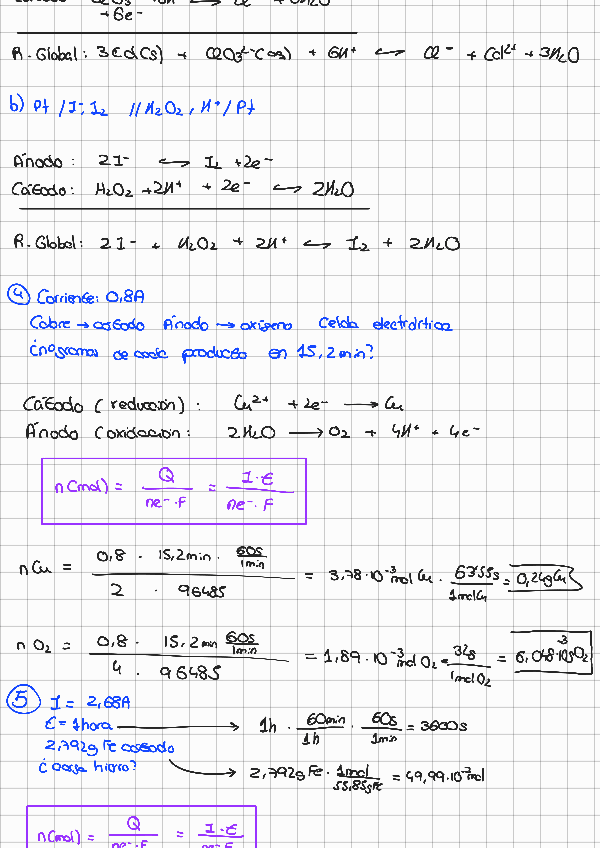 +6e⁻
R. Global: 3Cd(s) + ClO3⁻(aq) + 6H⁺ ↔ Cl⁻ + Cd²⁺ + 3H2O
b) Pt / I⁻, I2 // H2O2, H⁺ / Pt
Ánodo: 2I⁻ ↔ I2 + 2e⁻
Cátodo: H2O2 + 2H⁺ + 2e⁻ ↔ 2H2O
R. Global: 2I⁻ + H2O2 + 2H⁺ ↔ I2 + 2H2O
④ Corriente: 0,8A
Cobre → cátodo Ánodo → oxígeno Celda electrolítica
¿nº gramos de cada producto en 15,2 min?
Cátodo (reducción): Cu²⁺ + 2e⁻ → Cu
Ánodo (oxidación: 2H2O → O2 + 4H⁺ + 4e⁻
n(mol) = Q / ne⁻·F = I·t / ne⁻·F
nCu = 0,8 · 15,2min · 60s/1min / 2 · 96485 = 3,78·10⁻³ mol Cu · 63'55g/1molCu = 0,24g Cu
nO2 = 0,8 · 15,2min 60s/1min / 4 · 96485 = 1,89·10⁻³ mol O2 · 32g/1molO2 = 6,048·10⁻³g O2
⑤ I = 2,68A
t = 1hora → 1h · 60min/1h · 60s/1min = 3600s
2,792g Fe cátodo
¿carga hierro? → 2,792g Fe · 1mol/55,85gFe = 49,99·10⁻³mol
n(mol) = Q / ne⁻·F = I·t / ne⁻·F